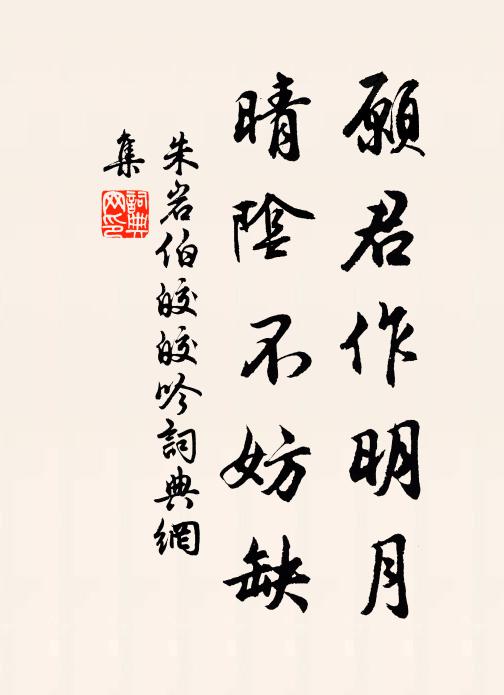 願君作明月
晴陰不妨缺
朱岩伯皎皎吟詞典網
集
詞典
网印